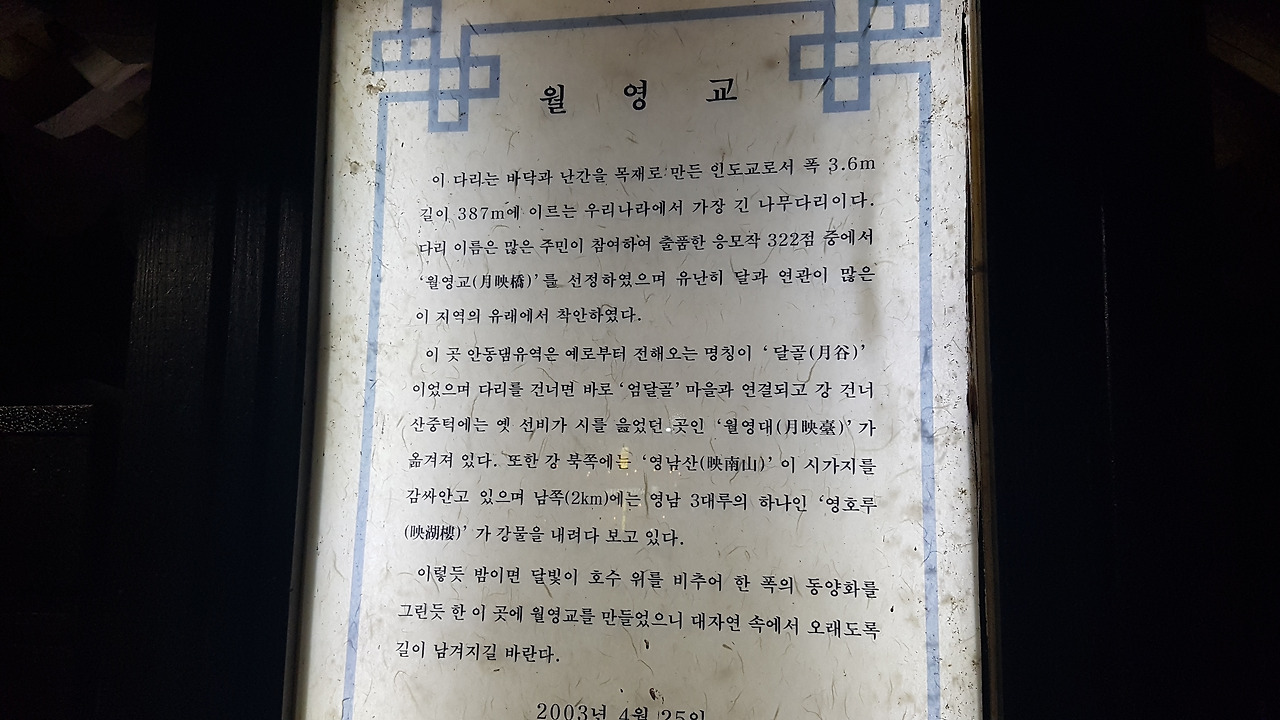 월 영 교
이 다리는 바닥과 난간을 목재로 만든 인도교로서 폭 3.6m
길이 387m에 이르는 우리나라에서 가장 긴 나무다리이다.
다리 이름은 많은 주민이 참여하여 출품한 응모작 322점 중에서
‘월영교(月映橋)’를 선정하였으며 유난히 달과 연관이 많은
이 지역의 유래에서 착안하였다.
이 곳 안동댐유역은 예로부터 전해오는 명칭이 ‘달골(月谷)’
이었으며 다리를 건너면 바로 ‘엄달골’ 마을과 연결되고 강 건너
산중턱에는 옛 선비가 시를 읊었던 곳인 ‘월영대(月映臺)’가
옮겨져 있다. 또한 강 북쪽에는 ‘영남산(映南山)’이 시가지를
감싸안고 있으며 남쪽(2km)에는 영남 3대루의 하나인 ‘영호루
(映湖樓)’가 강물을 내려다 보고 있다.
이렇듯 밤이면 달빛이 호수 위를 비추어 한 폭의 동양화를
그린듯 한 이 곳에 월영교를 만들었으니 대자연 속에서 오래도록
길이 남겨지길 바란다.
2003년 4월 25일